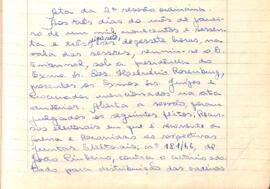 Ata da 2ª sessão ordinária.
Aos três dias do mês de janei-
ro de um mil novecentos e sessen-
ta e três, às dezessete horas, na
sala das sessões, reuniu-se o E.
Tribunal, sob a presidência do
Exmo. Sr. Des.
presentes os Exmos. Srs. Juízes e
Procurador mencionados na ata
anterior. Aberta a sessão foram
julgados os seguintes feitos: Recur-
sos eleitorais em que é
e recorridas as respectivas
Juntas Eleitorais, nº
de
João Pinheiro, contra o critério ado-
tado para distribuição das sobras